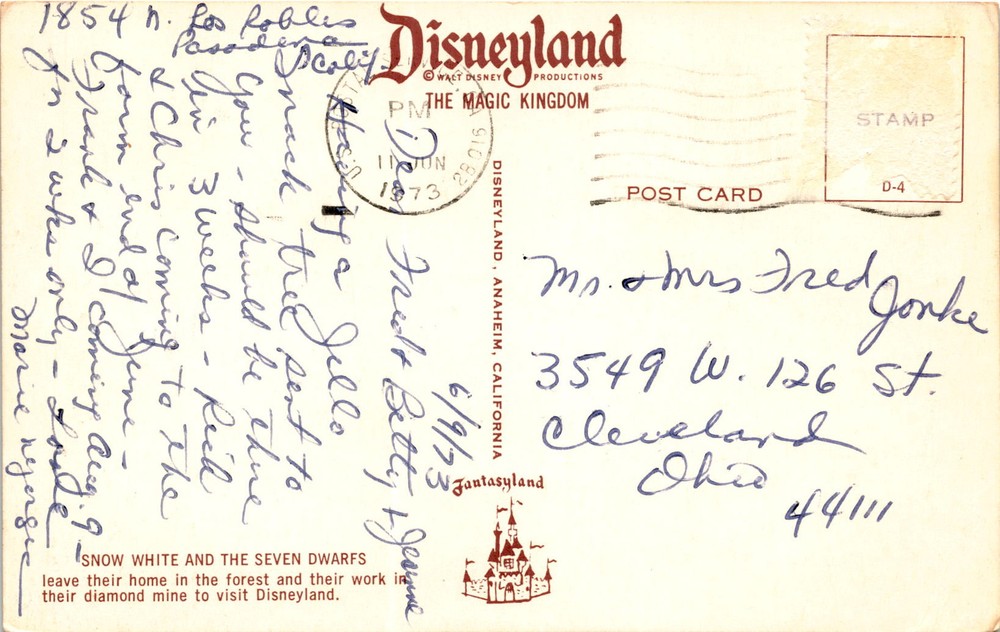 1854 N. Los Robles
Pasadena
Calif
Disneyland
© WALT DISNEY PRODUCTIONS
THE MAGIC KINGDOM
U.S. POSTAL SERVICE
PM
11 JUN
1973
STAMP
D-4
POST CARD
DISNEYLAND, ANAHEIM, CALIFORNIA
6/9/73
Dear Fred & Betty & Jeanne
Having a Jello
snack tree sent to
you - should be there
in 3 weeks - Rick
& Chris coming to the
farm end of June -
Frank & I coming Aug. 9 -
for 2 wks only - Love
Marie
Mr. & Mrs Fred Jonke
3549 W. 126 St.
Cleveland
Ohio
44111
Fantasyland
SNOW WHITE AND THE SEVEN DWARFS
leave their home in the forest and their work in
their diamond mine to visit Disneyland.